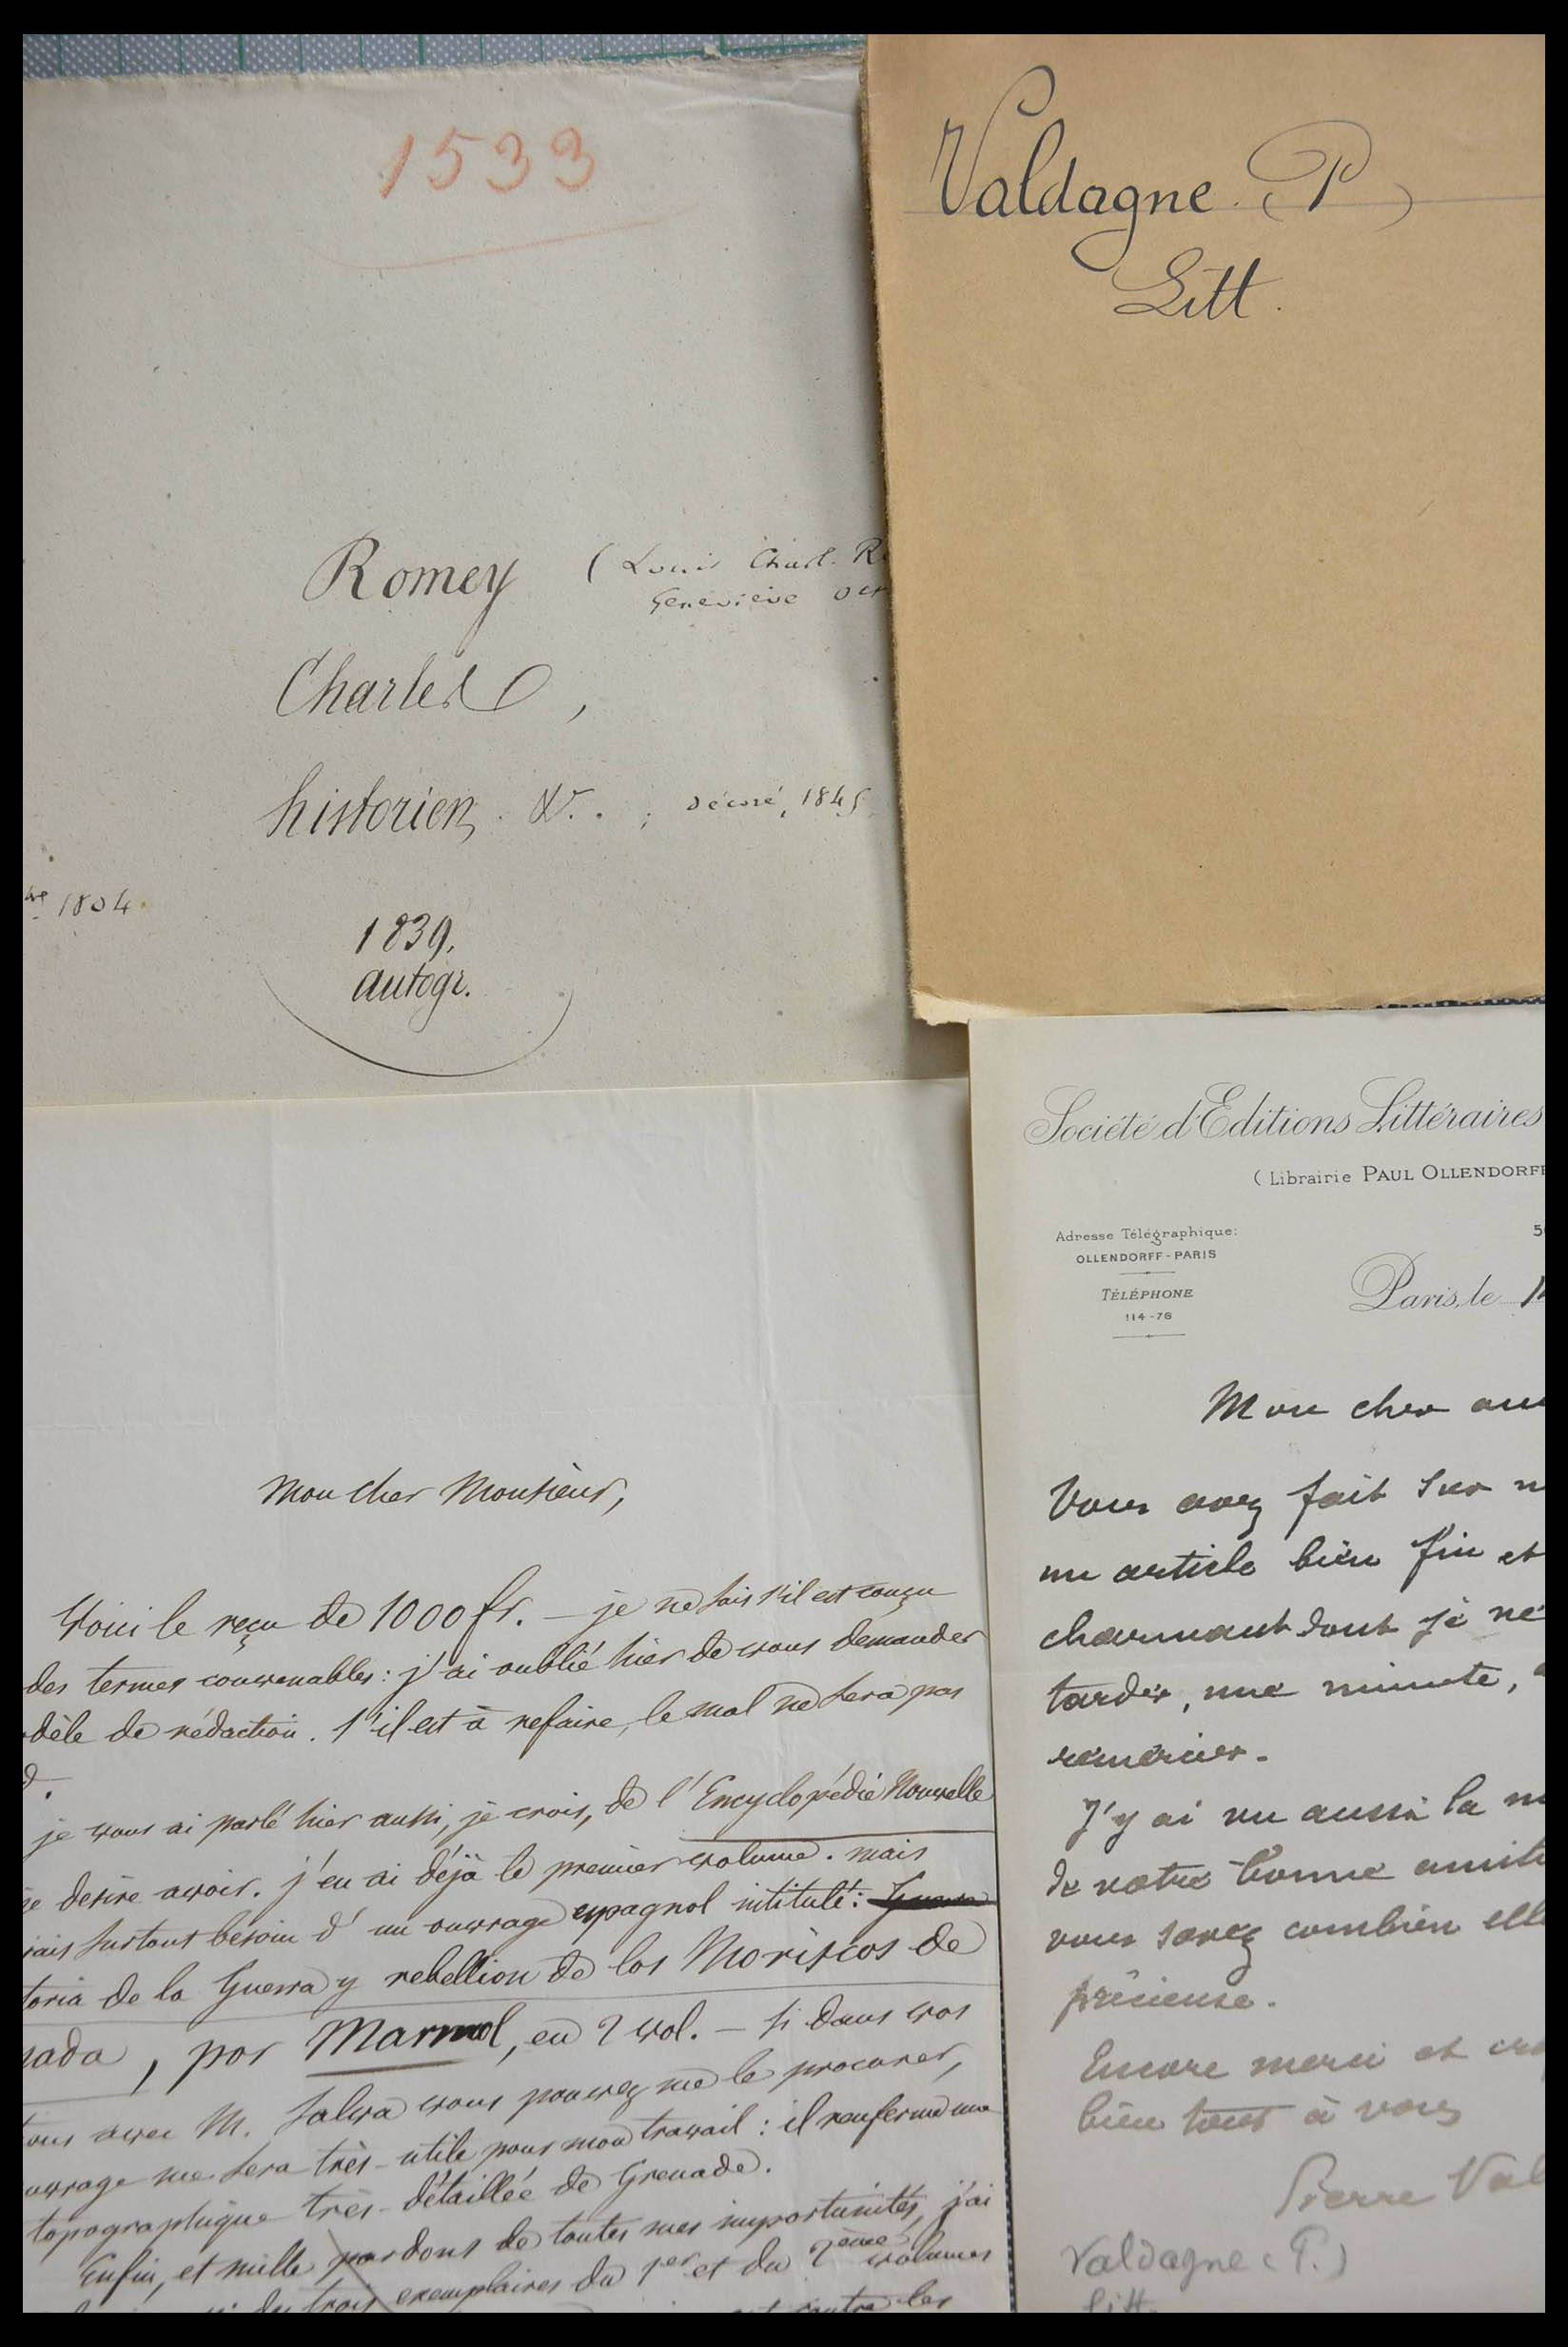 1533
Romey (Louis Charl. R
Geneviève
Charles,
historien. &r. ; décoré, 1845
1804
1839.
autogr.
Valdagne. (P)
Litt.
mon cher Monsieur,
Voici le reçu de 1000 fr. — je ne sais s'il est conçu
des termes convenables : j'ai oublié hier de vous demander
dèle de rédaction. s'il est à refaire, le mal ne sera pas
d.
je vous ai parlé hier aussi, je crois, de l'Encyclopédie Nouvelle
je desire avoir. j'en ai déjà le premier volume. mais
rais surtout besoin d'un ouvrage espagnol intitulé :
toria de la Guerra y rebellion de los Moriscos de
nada, por Marmol, en 2 vol. — si dans vos
avec M. Salva vous pouvez me le procurer,
uvrage me sera très-utile pour mon travail : il renferme une
topographique très-détaillée de Grenade.
Enfin, et mille pardons de toutes mes importunités, j'ai
trois exemplaires du 1er et du 2ème volumes
contre les
Société d'Editions Littéraires
(Librairie PAUL OLLENDORFF
Adresse Télégraphique:
OLLENDORFF-PARIS
TÉLÉPHONE
114-76
5
Paris, le 1
Mon cher am
Vous avez fait sur m
un article bien fin et
charmant dont je ne
tarder, une minute,
remercier.
J'y ai vu aussi la m
de votre bonne amiti
vous savez combien elle
précieuse.
Encore merci et cr
bien tout à vous
Pierre Val
Valdagne (P.)
Litt.